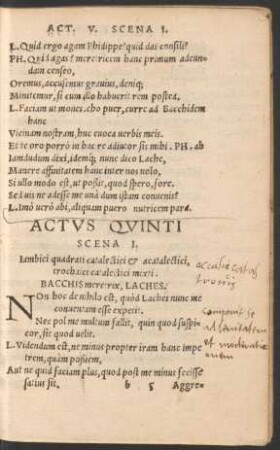 ACT. V. SCENA I.
L. Quid ergo agam Phidippe? quid das consilii?
PH. Quid agas? meretricem hanc primum adeun-
dam censeo,
Oremus, accusemus grauius, deniq;
Minitemur, si cum illo habuerit rem postea.
L. Faciam ut mones. eho puer, curre ad Bacchidem
hanc
Vicinam nostram, huc euoca uerbis meis.
Et te oro porrò in hac re adiutor sis mihi. PH. ah
Iamdudum dixi, idemq; nunc dico Lache,
Manere affinitatem hanc inter nos uolo,
Si ullo modo est, ut possit, quod spero, fore.
Sed uis ne adesse me unà dum istam conuenis?
L. Imò uerò abi, aliquam puero nutricem para.
ACTVS QVINTI
SCENA I.
Iambici quadrati catalectici & acatalectici,
trochaici catalectici mixti.
BACCHIS meretrix, LACHES.
NOn hoc de nihilo est, quòd Laches nunc me
conuentam esse expetit.
Nec pol me multum fallit, quin quod suspi-
cor, sit quod uelit.
L. Videndum est, ne minus propter iram hanc impe-
trem, quàm possiem,
Aut ne quid faciam plus, quod post me minus fecisse
satius sit.
b 5 Aggre-